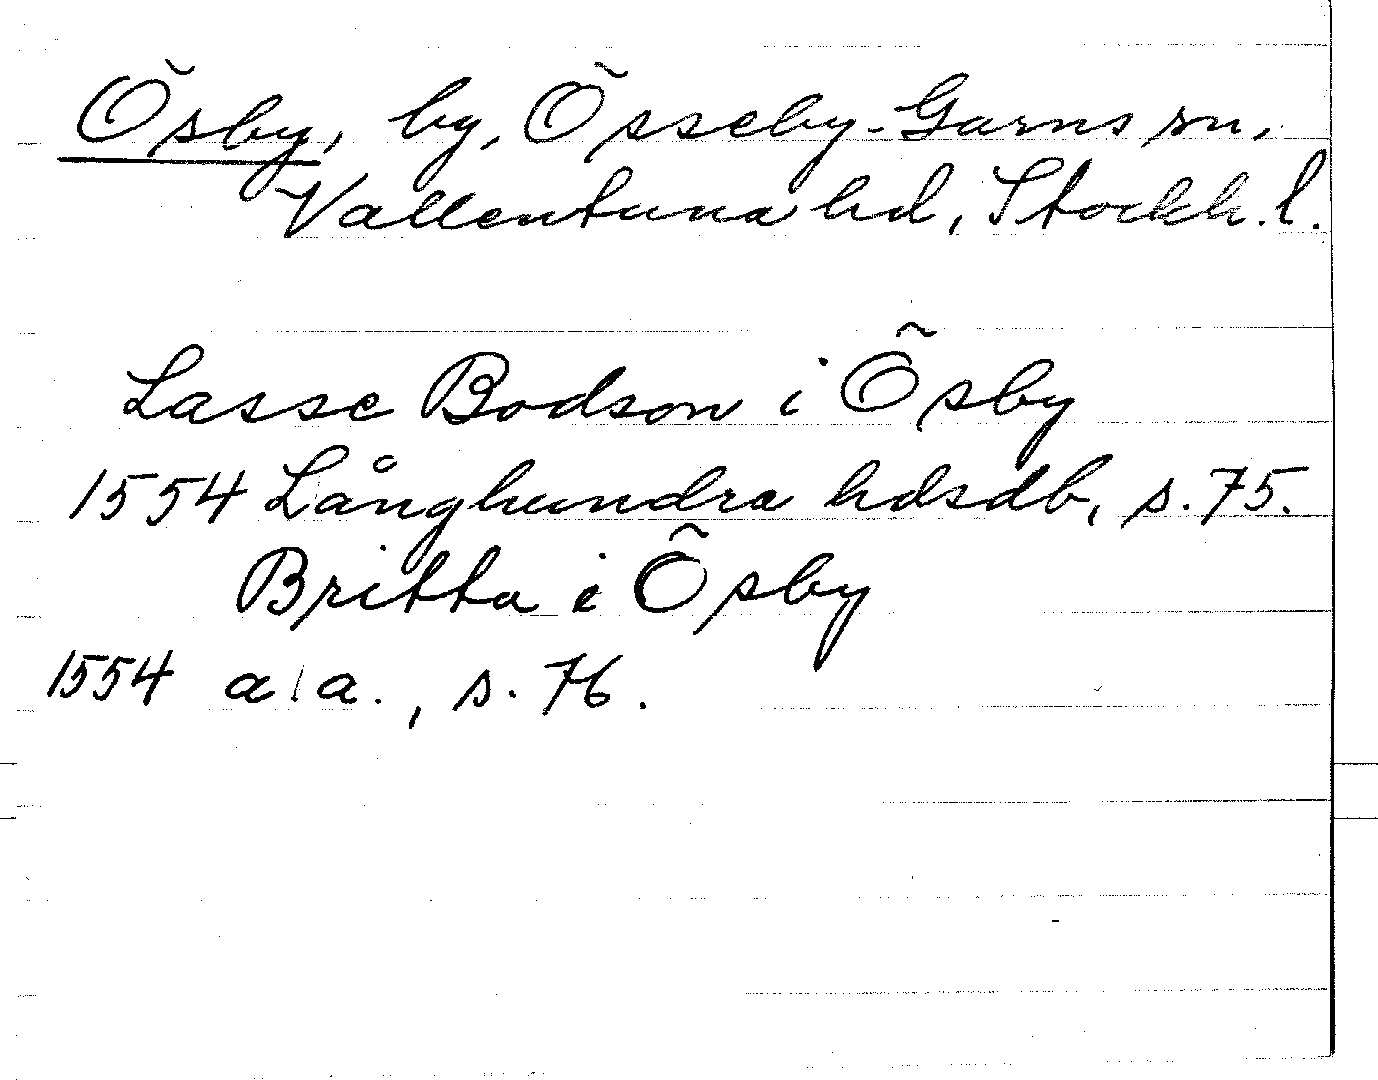 Ösby, by, Össeby-Garns sn,
Vallentuna hd, Stockh. l.
Lasse Bodson i Ösby
1554 Långhundra hdsdb, s. 75.
Britta i Ösby
1554 a. a., s. 76.